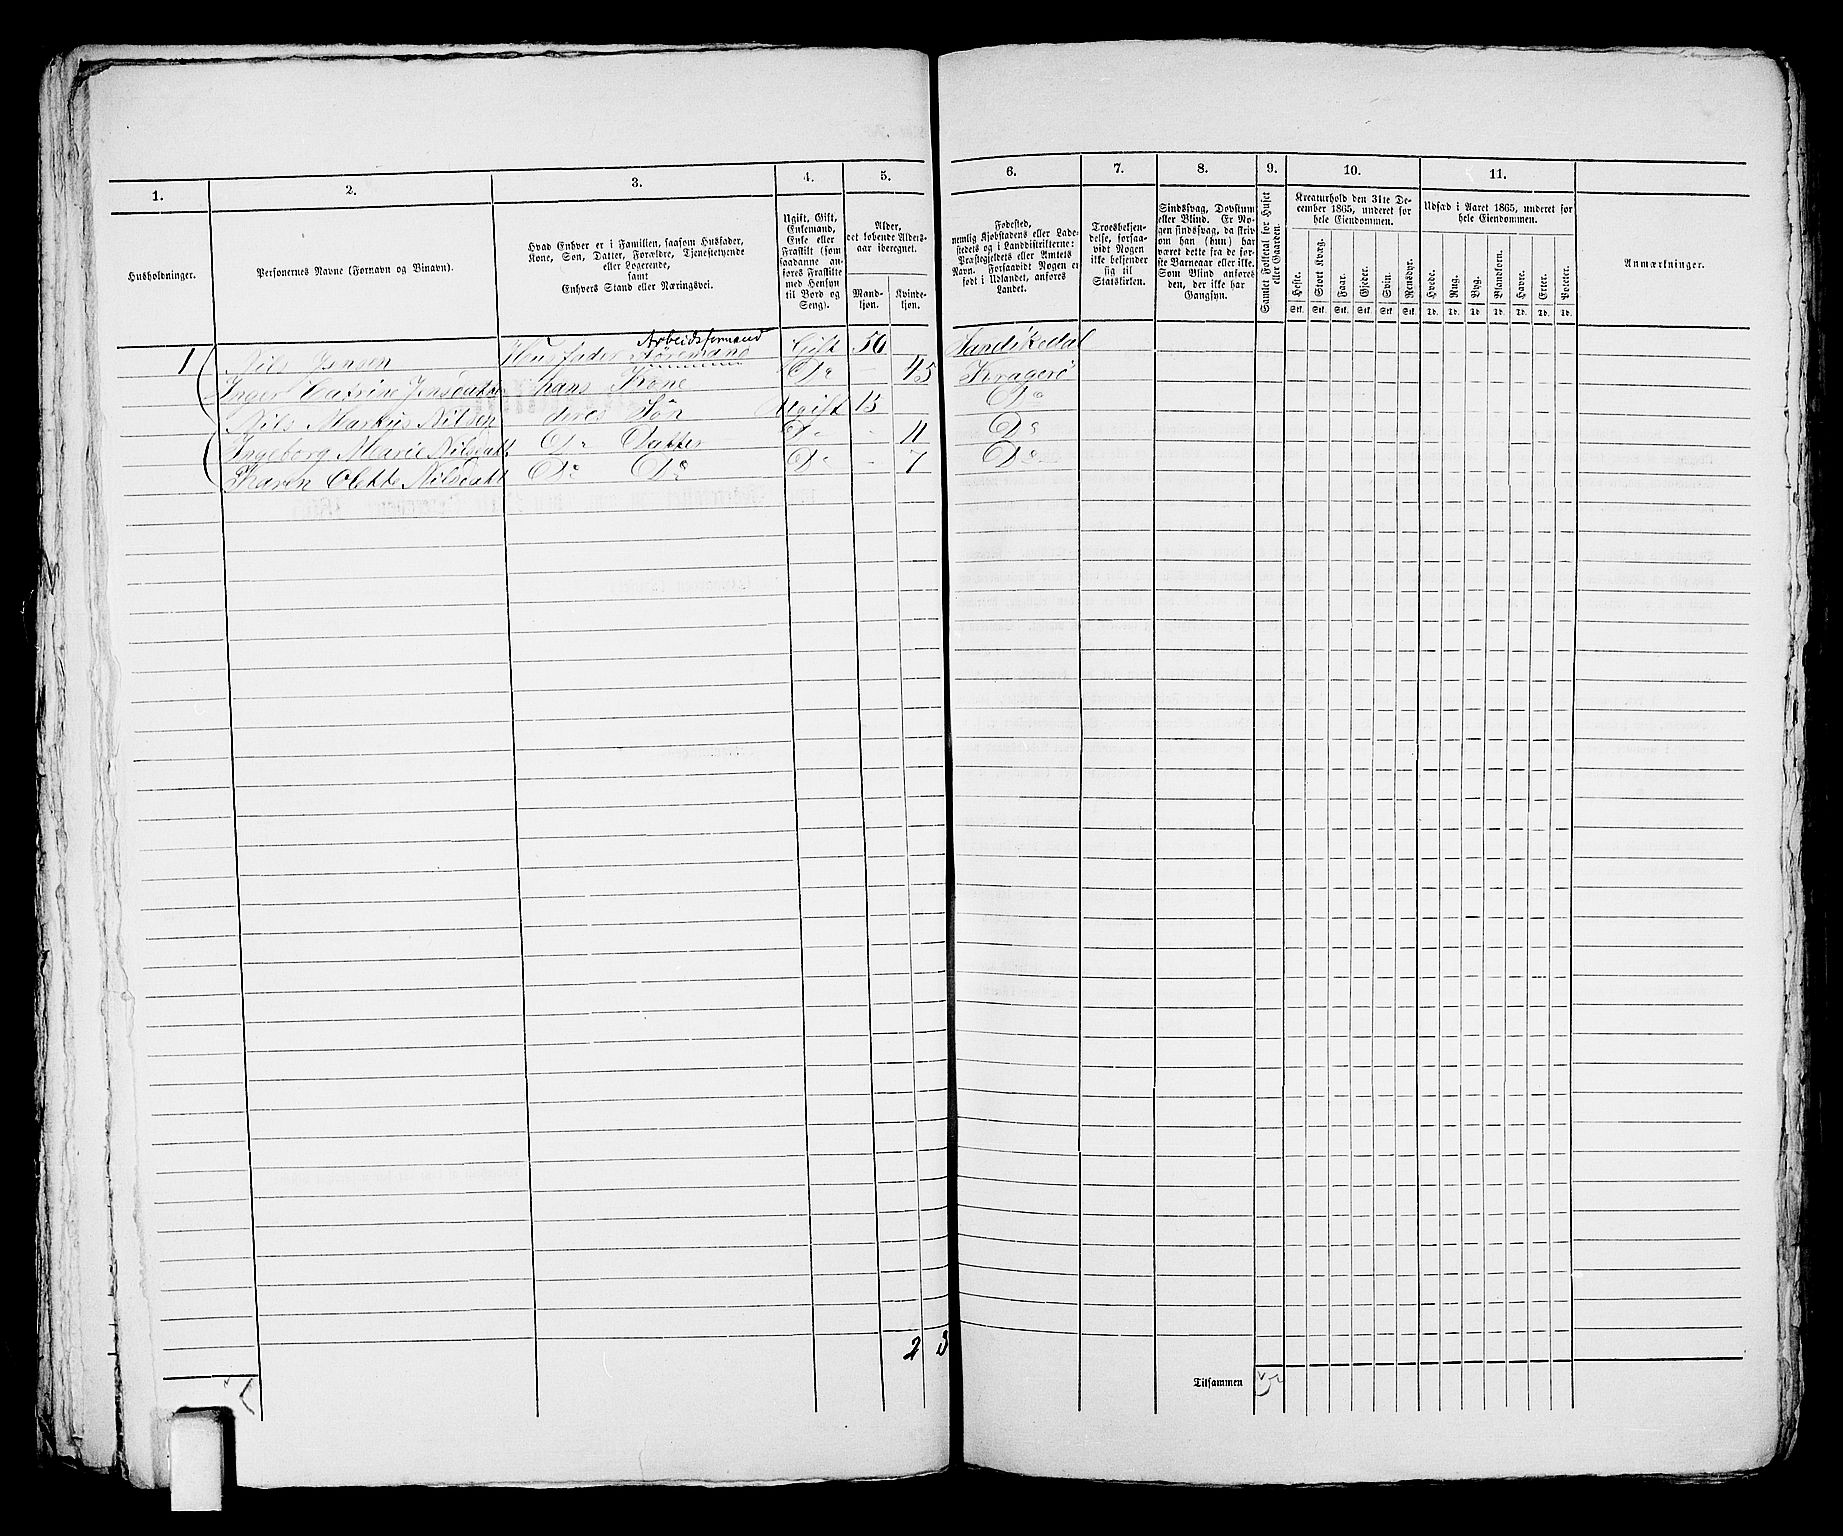 1. 2. 3. 4. 5. 6. 7. 8. 9. 10. 11.
Husholdninger.
Personernes Navne (Fornavn og Binavn).
Hvad Enhver er i Familien, saasom Husfader,
Kone, Søn, Datter, Forældre, Tjenestetyende
eller Logerende,
samt
Enhvers Stand eller Næringsvei.
Ugift, Gift,
Enkemand,
Enke eller
Fraskilt (som
saadanne an-
føres Fraskilte
med Hensyn
til Bord og
Seng).
Alder,
det løbende Alders-
aar iberegnet.
Mand-
kjøn.
Kvinde-
kjøn.
Fødested,
nemlig Kjøbstadens eller Lade-
stedets og i Landdistrikterne:
Præstegjeldets eller Amtets
Navn. Forsaavidt Nogen er
født i Udlandet, anføres
Landet.
Troesbekjen-
delse, forsaa-
vidt Nogen
ikke bekjender
sig til
Statskirken.
Sindssvag, Døvstum
eller Blind. Er No-
gen sindssvag, da skriv
om han (hun) har
været dette fra de før-
ste Barneaar eller ikke.
Som Blind anføres
den, der ikke har
Gangsyn.
Samlet Folketal for Huset
eller Gaarden.
Kreaturhold den 31te De-
cember 1865, underet for
hele Eiendommen.
Heste. Stort Kvæg. Faar. Gjeder. Svin. Rensdyr.
Stk. Stk. Stk. Stk. Stk. Stk.
Udsæd i Aaret 1865, underet for
hele Eiendommen.
Hvede. Rug. Byg. Blandkorn. Havre. Erter. Poteter.
Td. Td. Td. Td. Td. Td. Td.
Anmærkninger.
Arbeidsformand
1 Nils Jensen Husfader Gift 56 Sandøkedal
Inger Catrine Jensdatter hans Kone Do - 45 Kragerø
Nils Markus Nilsen deres Søn Ugift 15 Do
Ingeborg Marie Nilsdatt Do Datter Do - 11 Do
Karen Olette Nilsdatt Do Do Do - 7 Do
2 3
Tilsammen